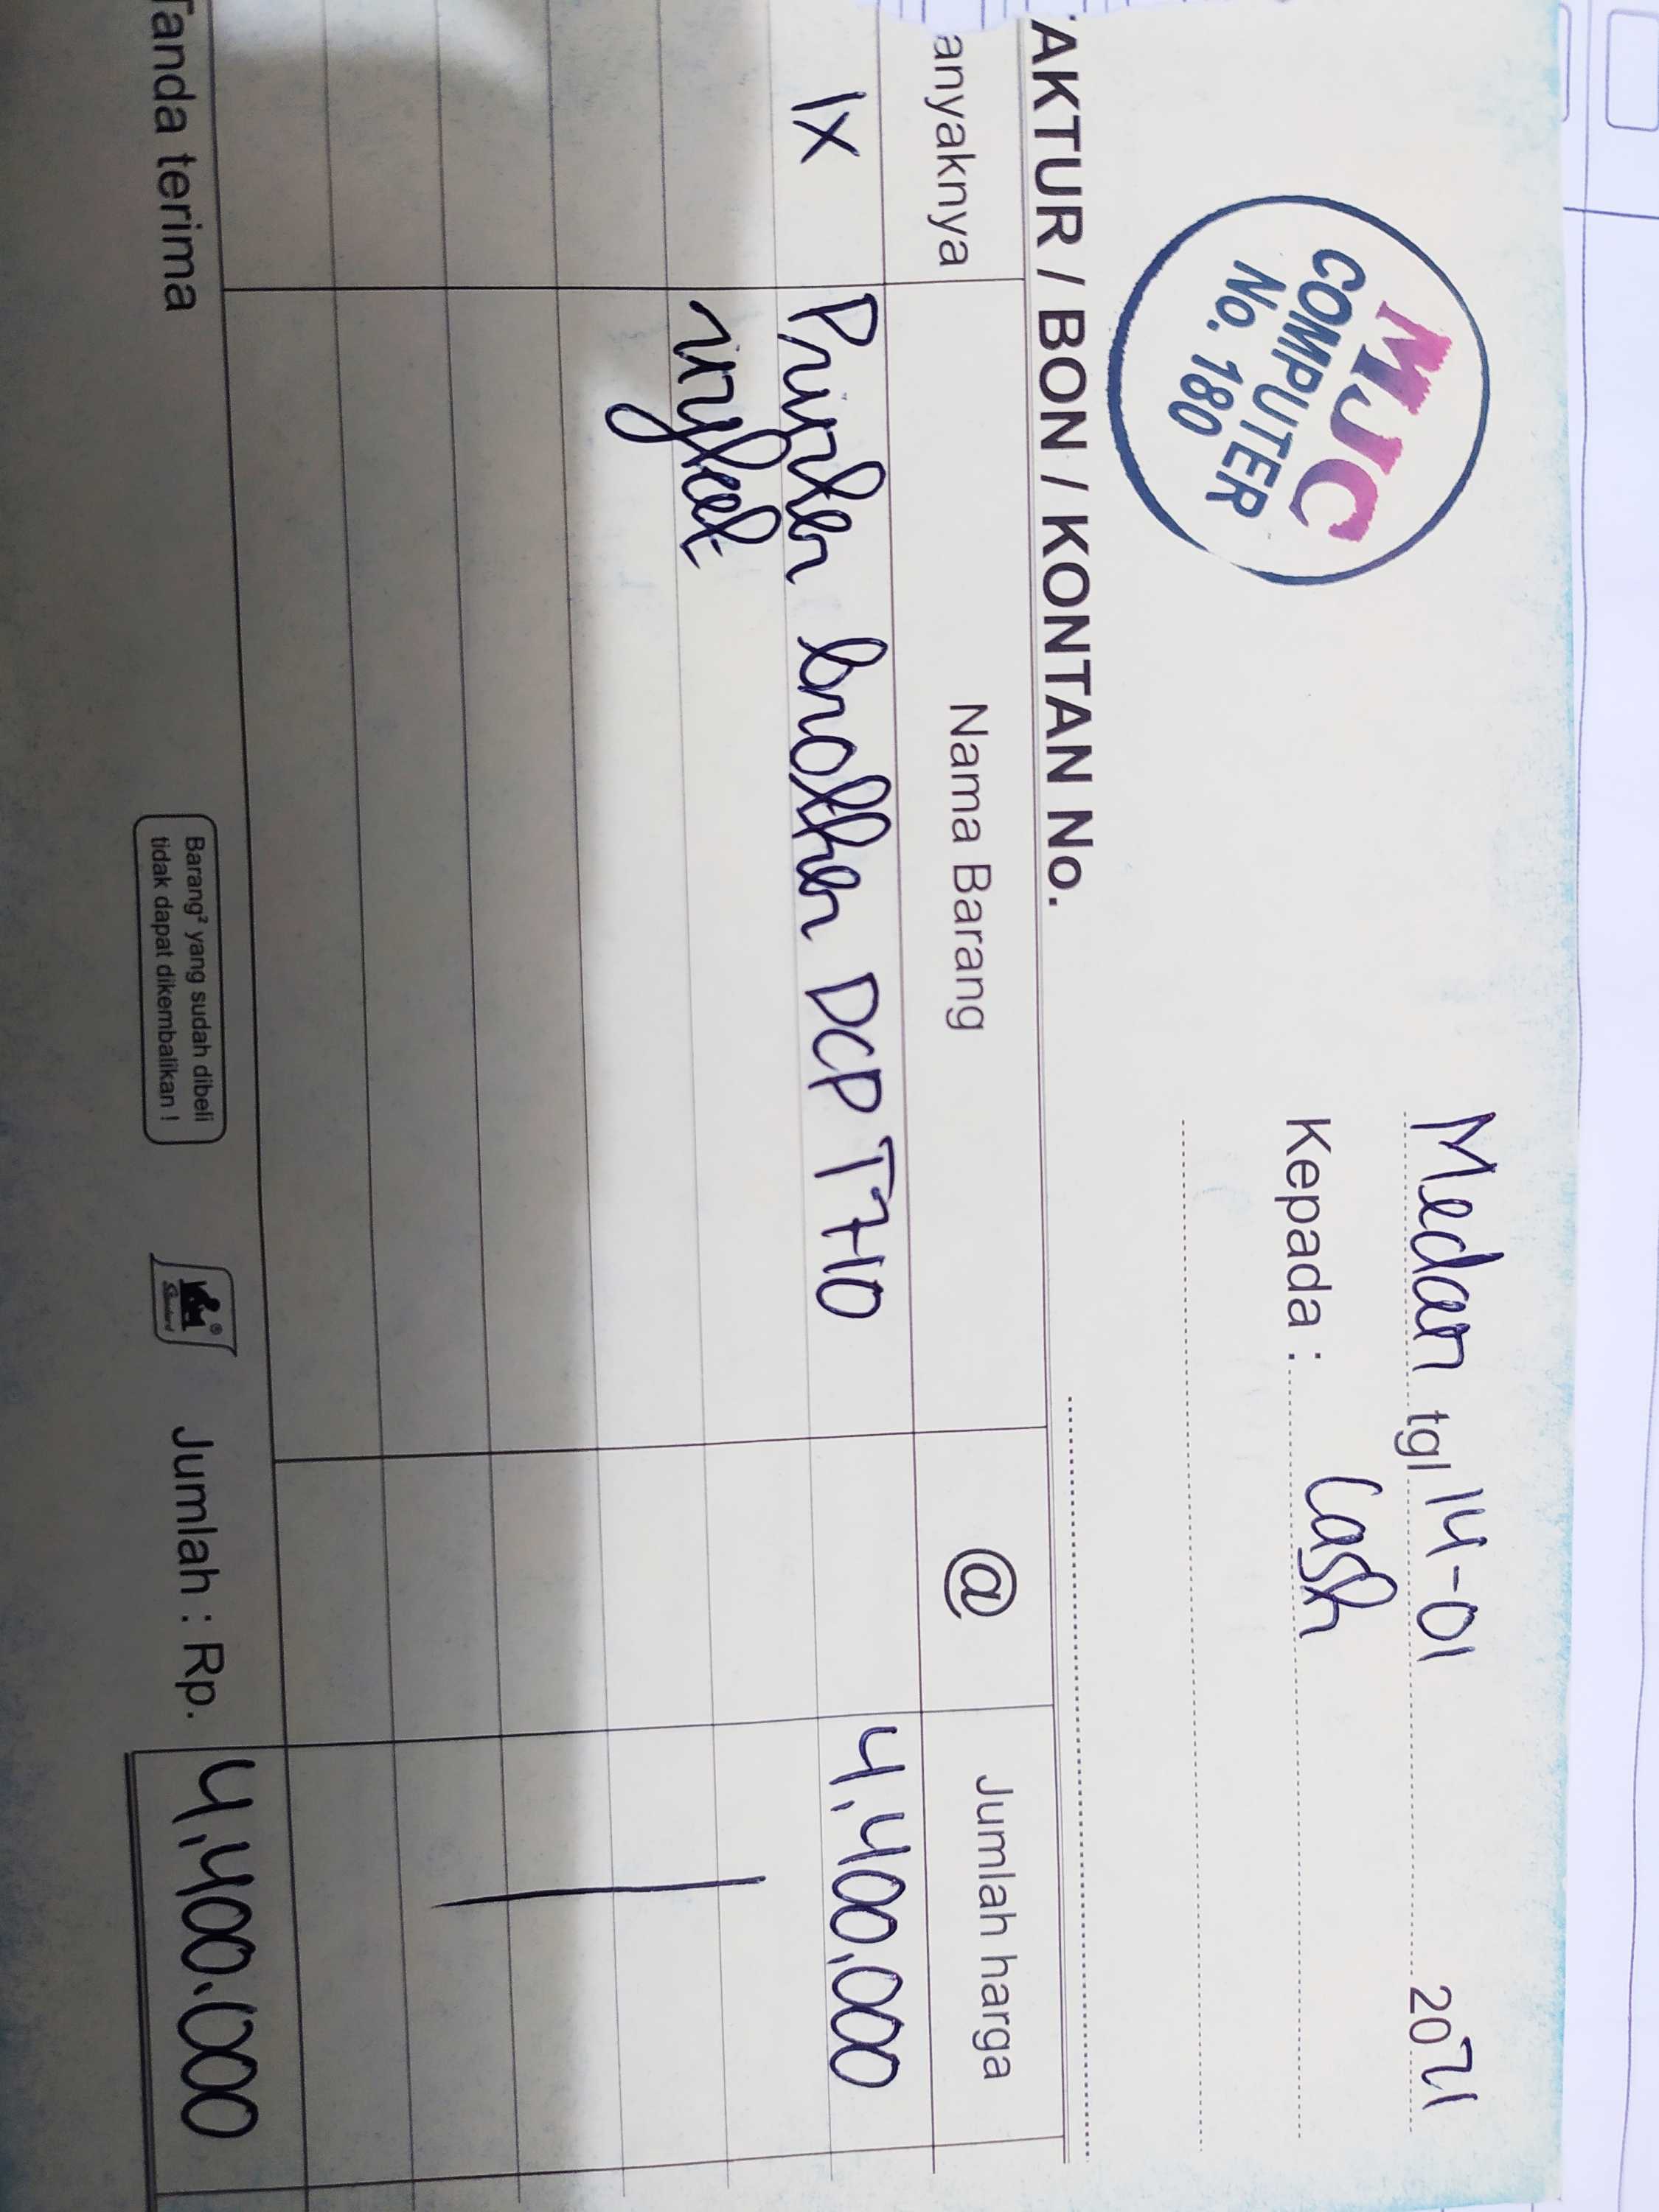 MJC
COMPUTER
No. 180
Medan tgl 14-01 2021
Kepada : Cash
AKTUR / BON / KONTAN No.
anyaknya Nama Barang @ Jumlah harga
1X Printer brother DCP T710 4,400,000
inkjet
Tanda terima
Barang² yang sudah dibeli
tidak dapat dikembalikan !
Standard
Jumlah : Rp. 4,400.000